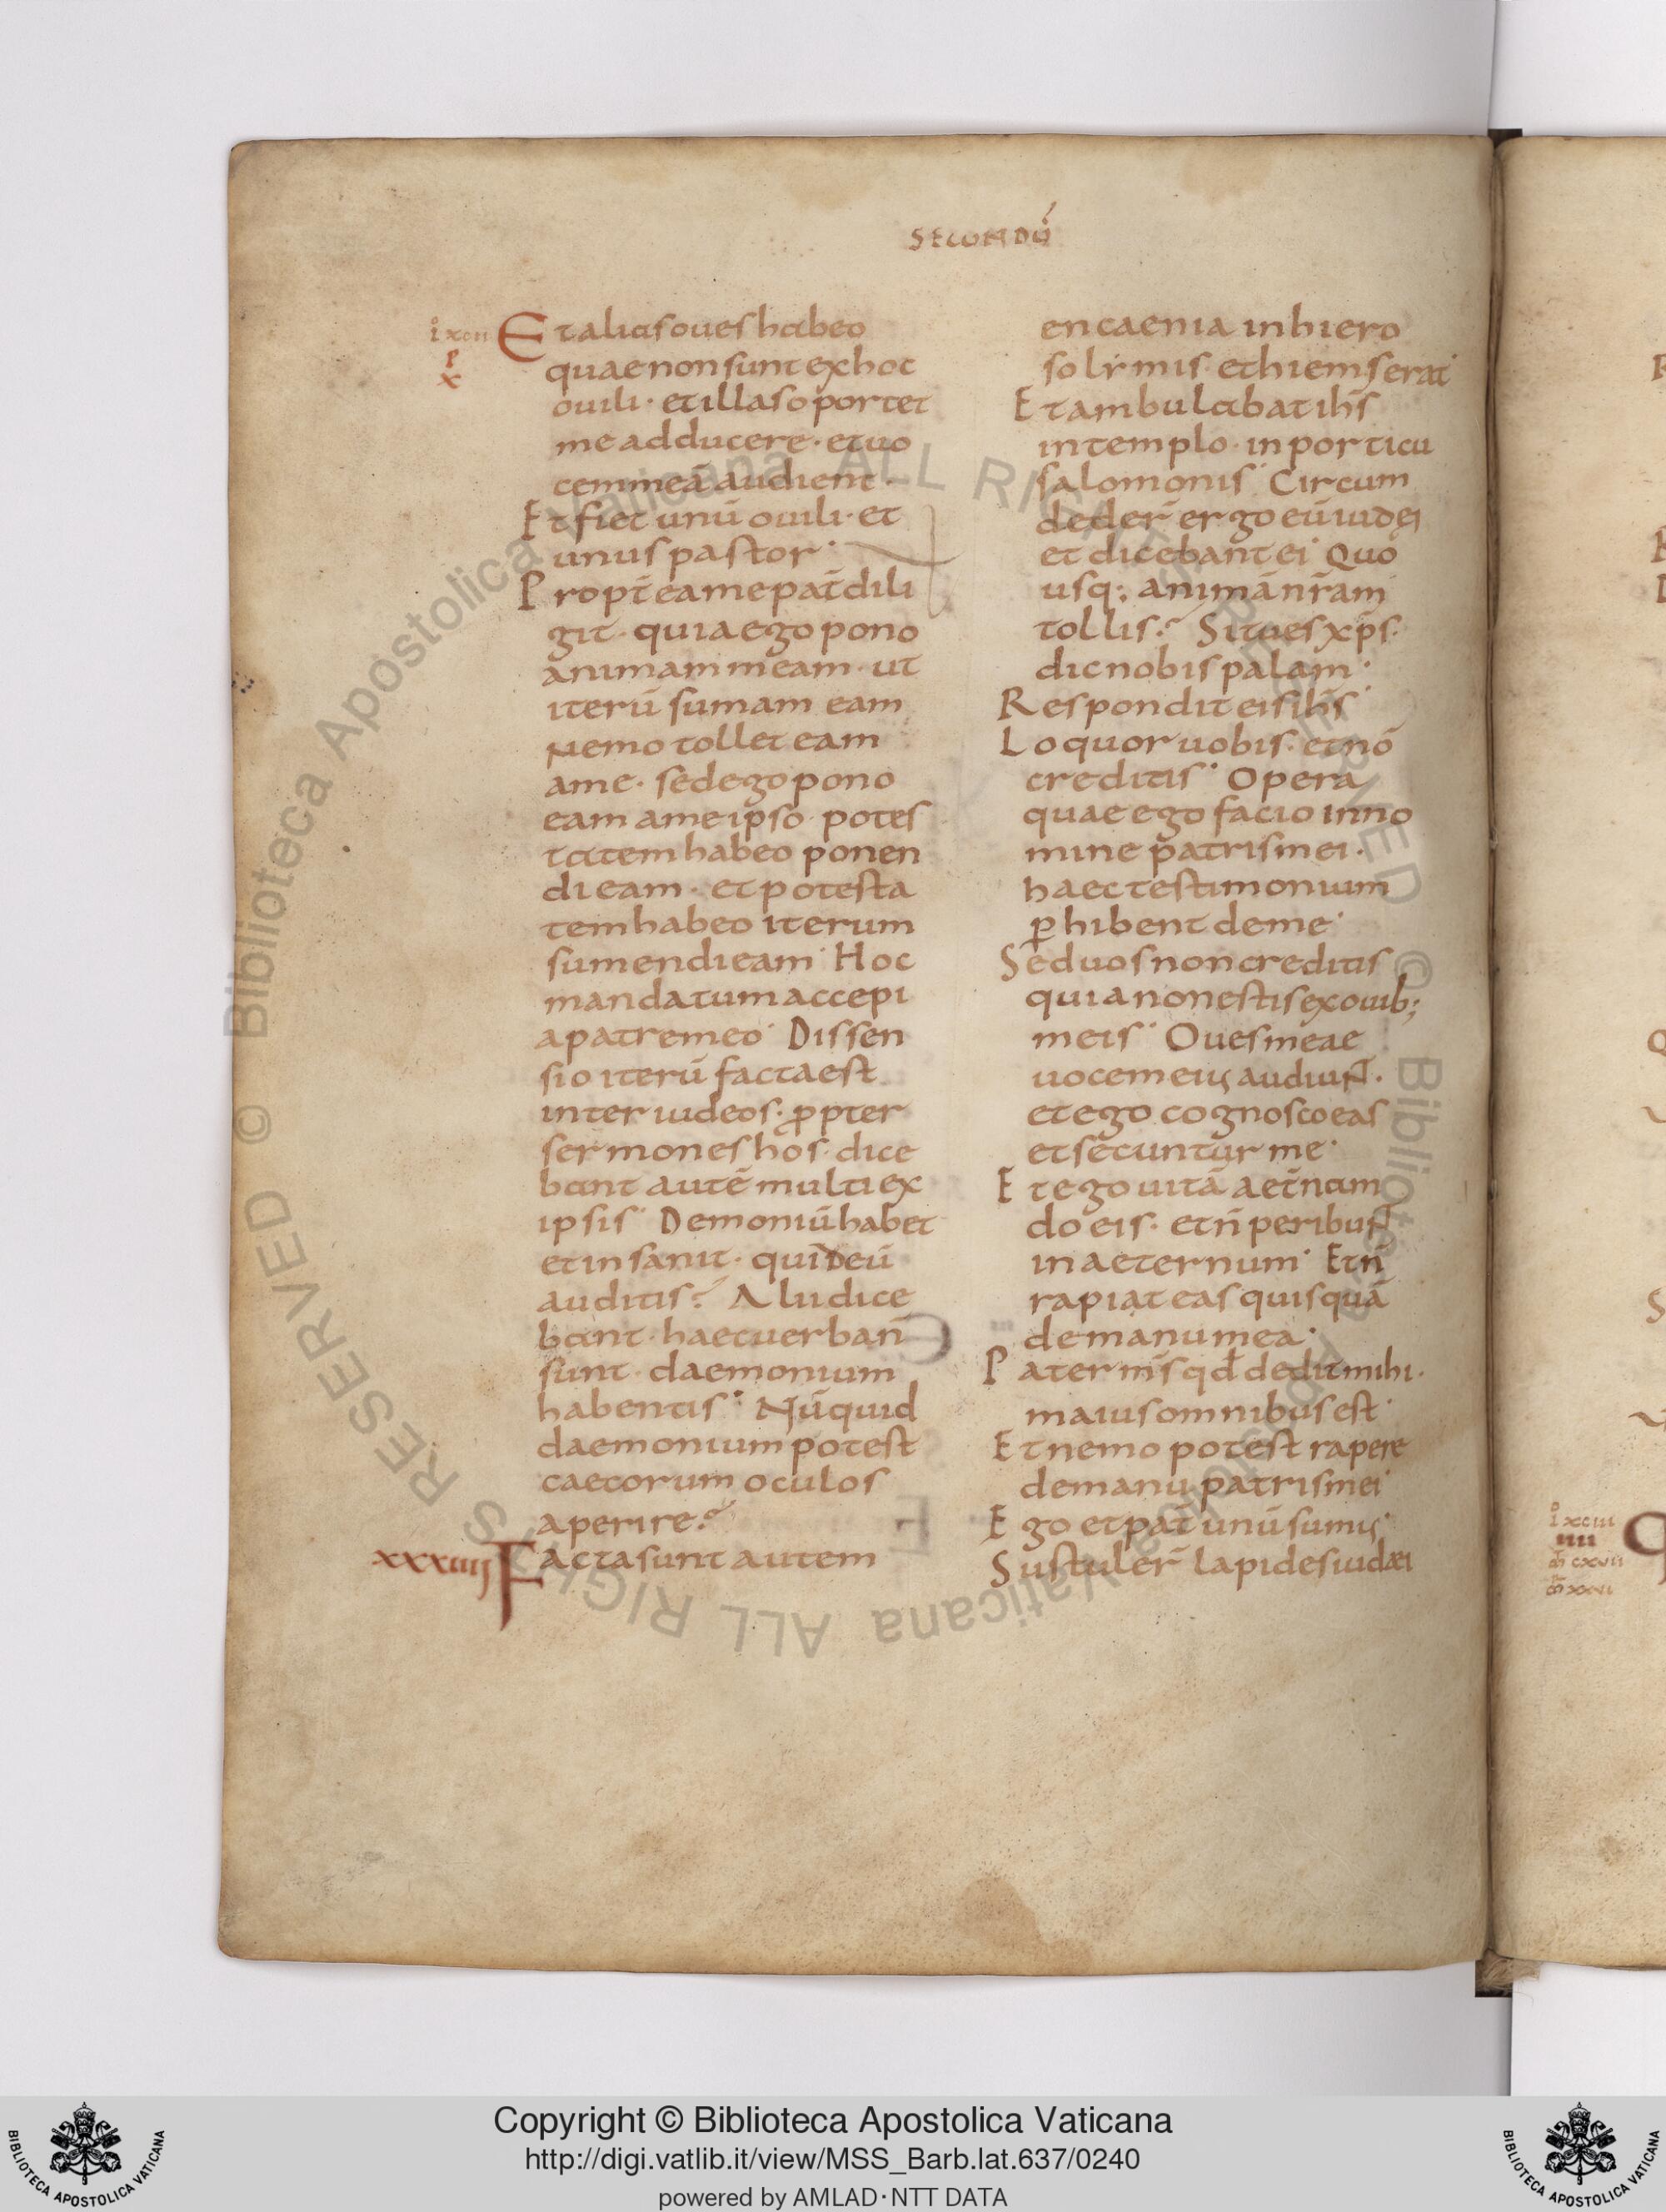 SECUNDŪ
Et alias oues habeo
quae non sunt ex hoc
ouili · et illas oportet
me adducere · et uo
cem meā audient ·
Et fiet unū ouili · et
unus pastor ·
Propt̄ ea me pat̄ dili
git · quia ego pono
animam meam · ut
iterū sumam eam
Nemo tollet eam
a me · sed ego pono
eam a me ipso · potes
tatem habeo ponen
di eam · et potesta
tem habeo iterum
sumendi eam · Hoc
mandatum accepi
a patre meo · Dissen
sio iterū facta est
inter iudeos · ꝓpter
sermones hos · dice
bant autē multi ex
ipsis · Demoniū habet
et insanit · quid eū
auditis? Alii dice
bant · haec uerba n̄
sunt · daemonium
habentis · Nūquid
daemonium potest
caecorum oculos
aperire?
xxxiiii Facta sunt autem
encaenia in hiero
solymis · et hiems erat
Et ambulabat ihs̄
in templo · in porticu
salomonis · Circum
deder̄ ergo eū iudęi
et dicebant ei · Quo
usq; animā nr̄am
tollis? Si tu es xp̄s ·
dic nobis palam ·
Respondit eis ihs̄ ·
Loquor uobis · et nō
creditis · Opera
quae ego facio in no
mine patris mei ·
haec testimonium
ꝑhibent de me ·
Sed uos non creditis
quia non estis ex ouib;
meis · Oues meae
uocem eius audiunt ·
et ego cognosco eas
et secuntur me ·
Et ego uitā aet̄nam
do eis · et n̄ peribunt
in aeternum · Et n̄
rapiat eas quisquā
de manu mea ·
Pater ms̄ qd̄ dedit mihi ·
maius omnibus est ·
Et nemo potest rapere
de manu patris mei ·
Ego et pat̄ unū sumus ·
Sustuler̄ lapides iudæi
Copyright © Biblioteca Apostolica Vaticana
http://digi.vatlib.it/view/MSS_Barb.lat.637/0240
powered by AMLAD·NTT DATA